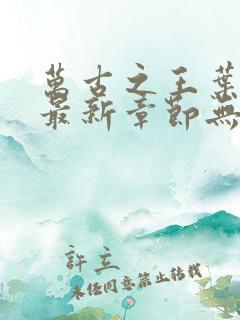 萬古之王葉
最新章節無
許立
未經同意禁止轉載